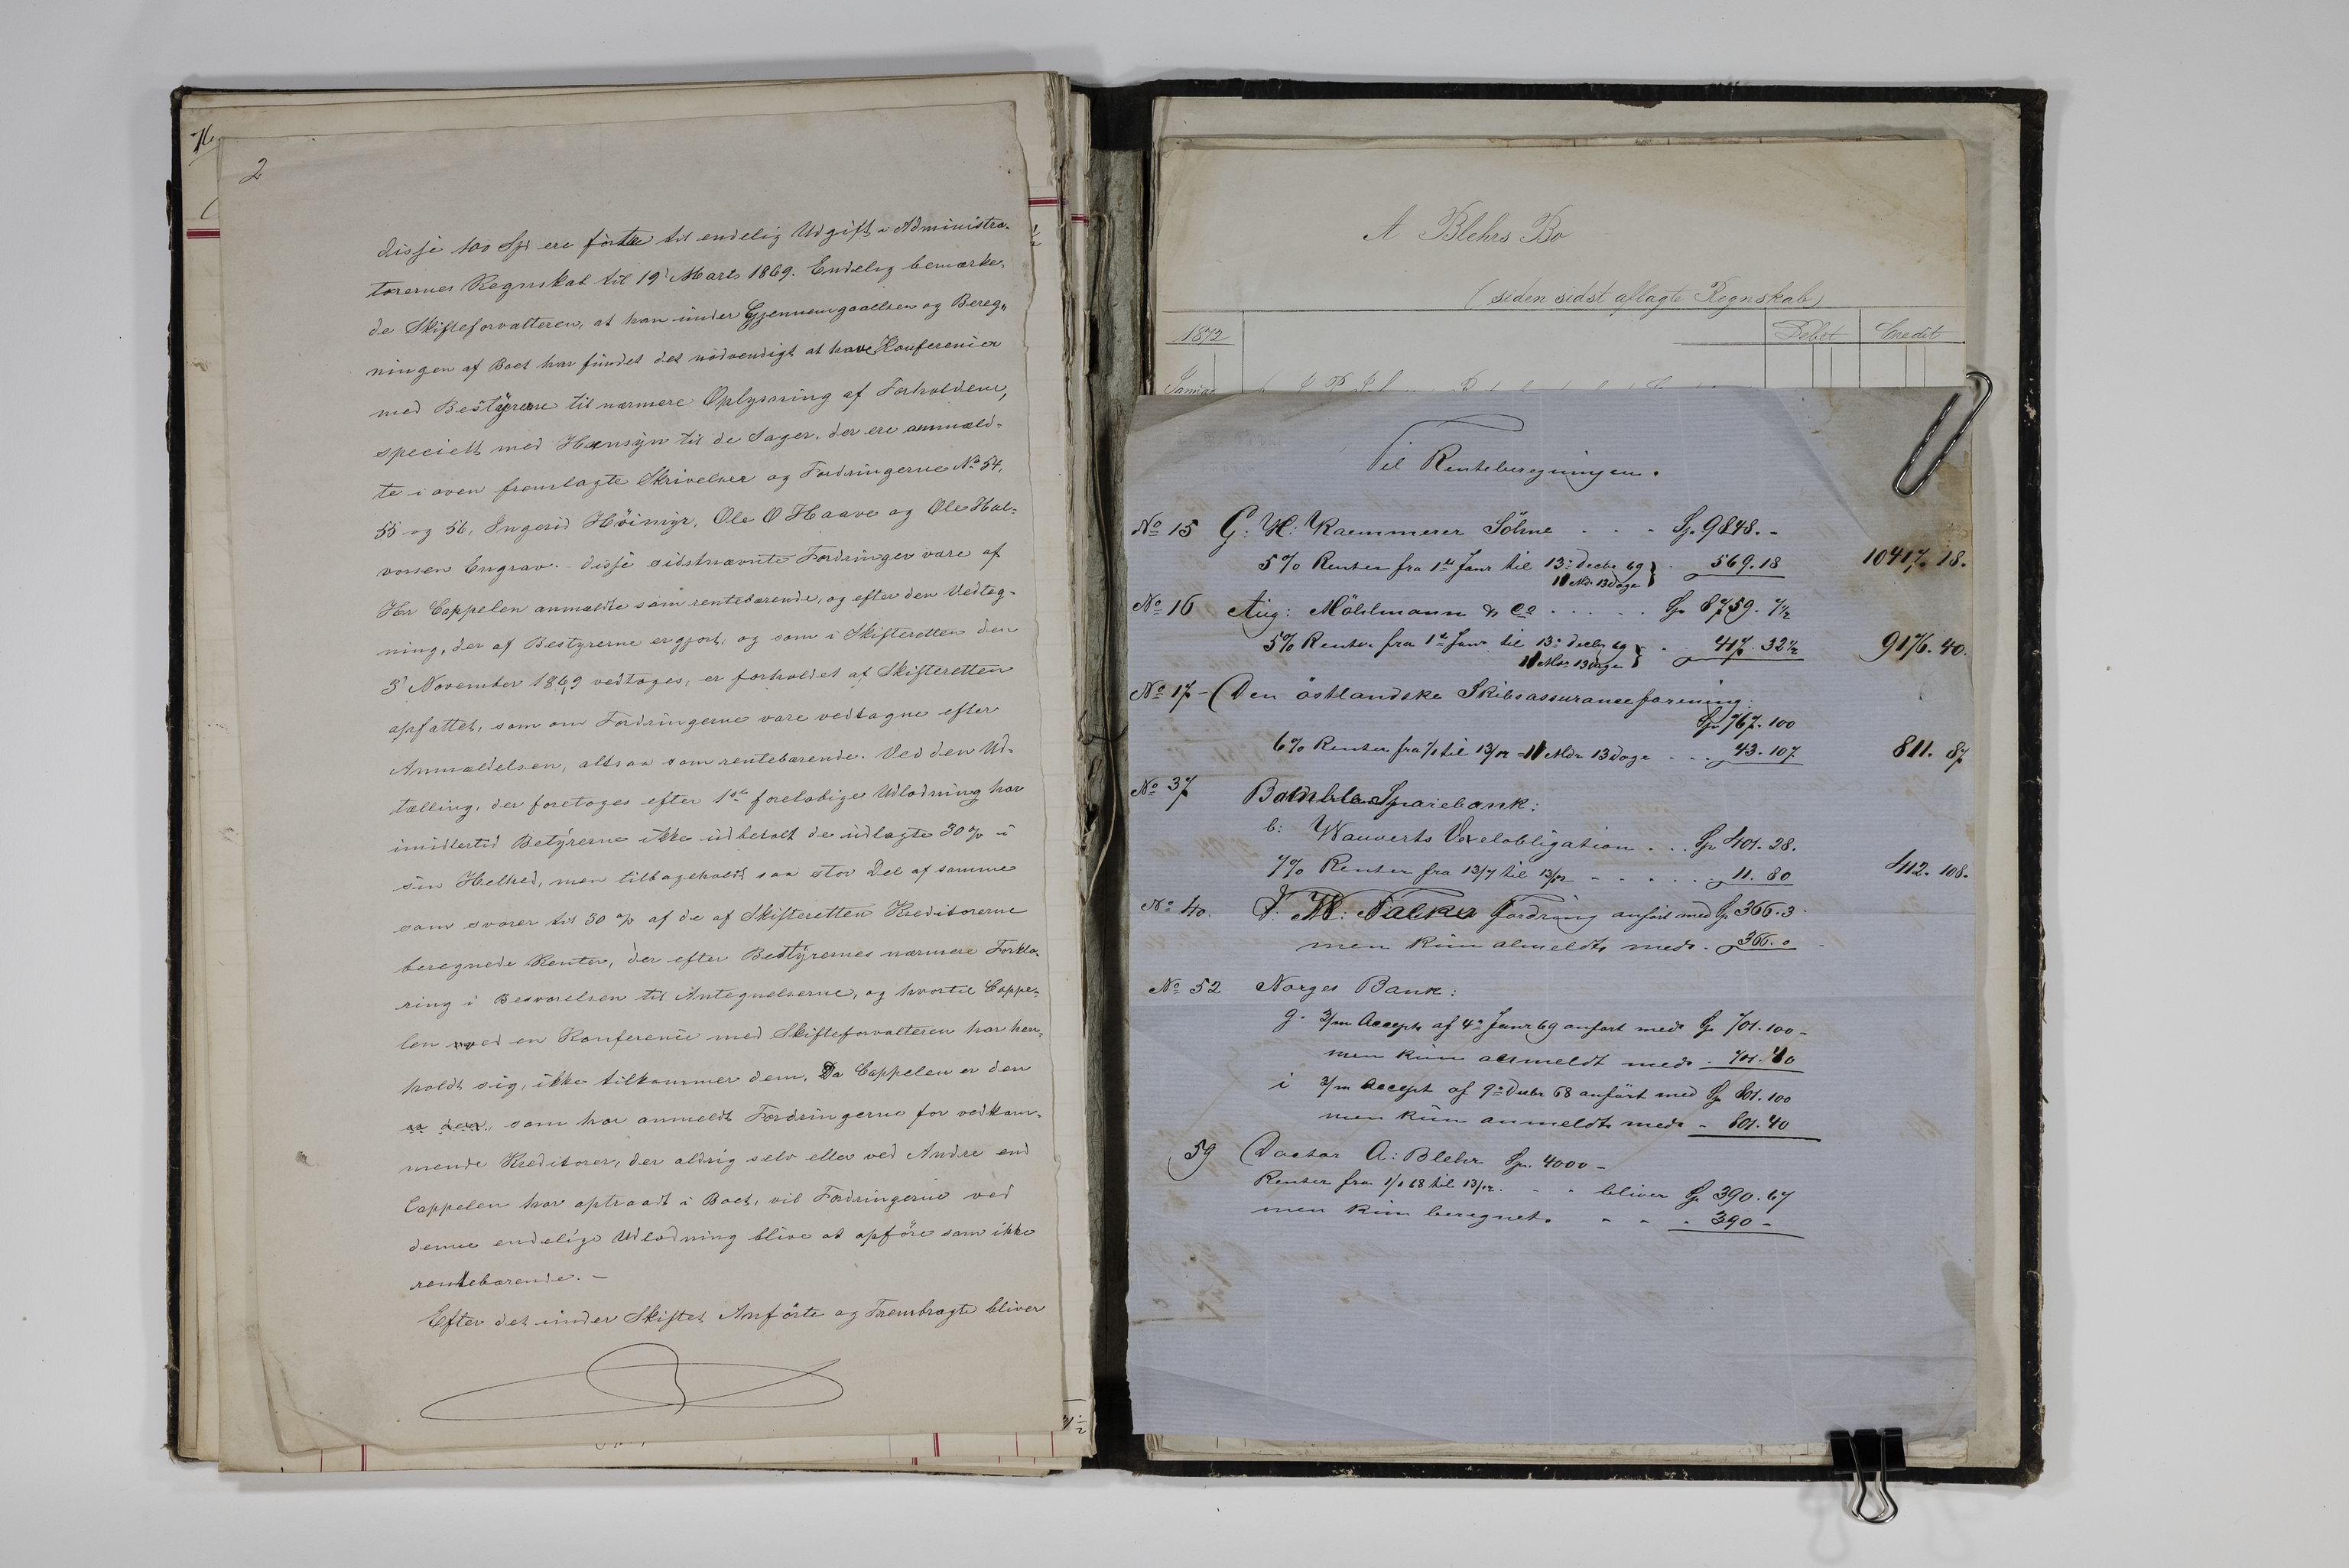 2
disse 100 Spd ere førte til endelig Udgift i Administra-
torernes Regnskab til 19' Marts 1869. Endelig bemærke-
de Skifteforvalteren, at han under Gjennemgaaelsen og Bereg-
ningen af Boet har fundet det nödvendigt at have Konferencer
med Bestyrerne til nærmere Oplysning af Forholdene,
specielt med Hensyn til de Sager, der ere anmeld-
te i oven fremlagte Skrivelser og Fordringerne No 54,
55 og 56, Ingerid Höimyr, Ole O Haave og Ole Hal-
vorsen Engrav. - disse sidstnævnte Fordringer vare af
Hr Cappelen anmeldte som rentebærende, og efter den Vedteg-
ning, der af Bestyrerne er gjort, og som i Skifteretten den
3' November 1869 vedtoges, er forholdet af Skifteretten
opfattet, som om Fordringerne vare vedtagne efter
Anmeldelsen, altsaa som rentebærende. Ved den Ud-
tælling, der foretoges efter 1ste forelöbige Udlodning har
imidlertid Betyrerne ikke udbetalt de udlagte 30 % i
sin Helhed, men tilbageholdt saa stor Del af samme
som svarer til 50 % af de af Skifteretten Kreditorerne
beregnede Renter, der efter Bestyrernes nærmere Forkla-
ring i Besvarelsen til Antegnelserne, og hvortil Cappe-
len ved en Konference med Skifteforvalteren har hen-
holdt sig, ikke tilkommer dem. Da Cappelen er den
er den, som har anmeldt Fordringerne for vedkom-
mende Kreditorer, der aldrig selv eller ved Andre end
Cappelen har optraadt i Boet, vil Fordringerne ved
denne endelige Udlodning blive at opføre som ikke
rentebærende. -
Efter det under Skiftet Anförte og Frembragte bliver
A Blehrs Bo
(siden sidst aflagte Regnskab)
1872 Debet Credit
Januar
Til Renteberegningen.
No 15 G: H: Kaemmerer Söhne . . . Sp. 9848. -
5% Renter fra 1ste Janr til 13de Decbr 69 . 569.18 10417. 18.
11 Mdr 13 Dage
No 16 Aug: Möhlmann & Co . . . . . Sp 8759. 7½
5% Renter fra 1ste Janr til 13de Decbr 69 . . 417. 32½ 9176. 40.
11 Mdr 13 Dage
No 17 - Den östlandske Skibsassuranceforening:
Sp. 767. 100
6% Renter fra 1/1 til 13/12 = 11 Mdr 13 Dage . . . 43. 107. 811. 87
No 37 Bamble Sparebank:
b: Wauverts Vexelobligation . . . Sp 401. 28.
7% Renter fra 13/7 til 13/12 - - . . . . 11. 80 412. 108.
No 40. F. W: Falkes Fordring anført med Sp 366. 3
men kun almeldt med - 366. 0
No 52 Norges Bank:
g. 3/m Accept af 4de Janr 69 anført med Sp 701. 100 -
men kun anmeldt med - 701. 40
i 3/m Accept af 9de Decbr 68 anført med Sp 801. 100
men kun anmeldt med - 801. 40
59 Doctor A: Blehr Sp. 4000 -
Renter fra 1/1 68 til 13/12. - - bliver Sp 390. 67
men kun beregnet. - - . 390 -